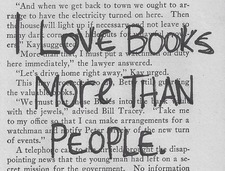 "And when we get back to town we ought to ar-
to have the electricity turned on here. Then
house will light up if necessary and not leave so
dark
Kay
I LOVE BOOKS
put a watchman on duty
here immediately," the lawyer answered.
"Let's drive home right away," Kay urged.
This still
the valuable books.
MORE THAN
"We must the
with the jewels," advised Bill Tracey. "Take me
to my office so that I can make arrangements for a
watchman notify of the new turn
of events."
PEOPLE.
A telephone disap-
pointing news that the young man had left on a se-
cret mission for the government. No information